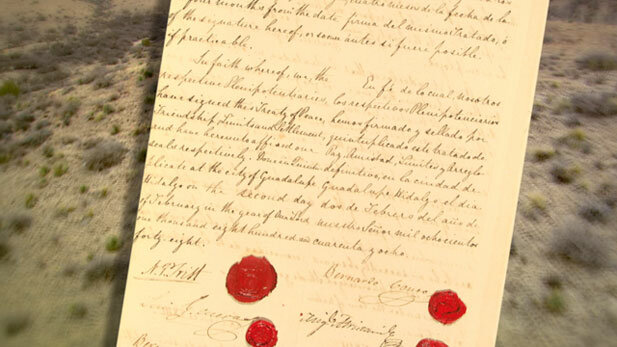 four months from the date
of the signature hereof, or sooner
if practicable.
In faith whereof, we, the
respective Plenipotentiaries,
have signed this Treaty of Peace,
Friendship, Limits and Settlement,
and have hereunto affixed our
seals respectively. Done in Quintu
plicate at the city of Guadalupe
Hidalgo on the second day
of February in the year of our Lord
one thousand eight hundred and
forty-eight.
cuatro meses de la fecha de la
firma del mismo Tratado, ó
antes si fuere posible.
En fé de lo cual, nosotros
los respectivos Plenipotenciarios
hemos firmado y sellado por
quintuplicado este tratado de
Paz, Amistad, Limites y Arreglo
definitivo, en la ciudad de
Guadalupe Hidalgo el dia
dos de Febrero del año de
nuestro Señor mil ochocientos
cuarenta y ocho.
N. P. Trist
Bernardo Couto